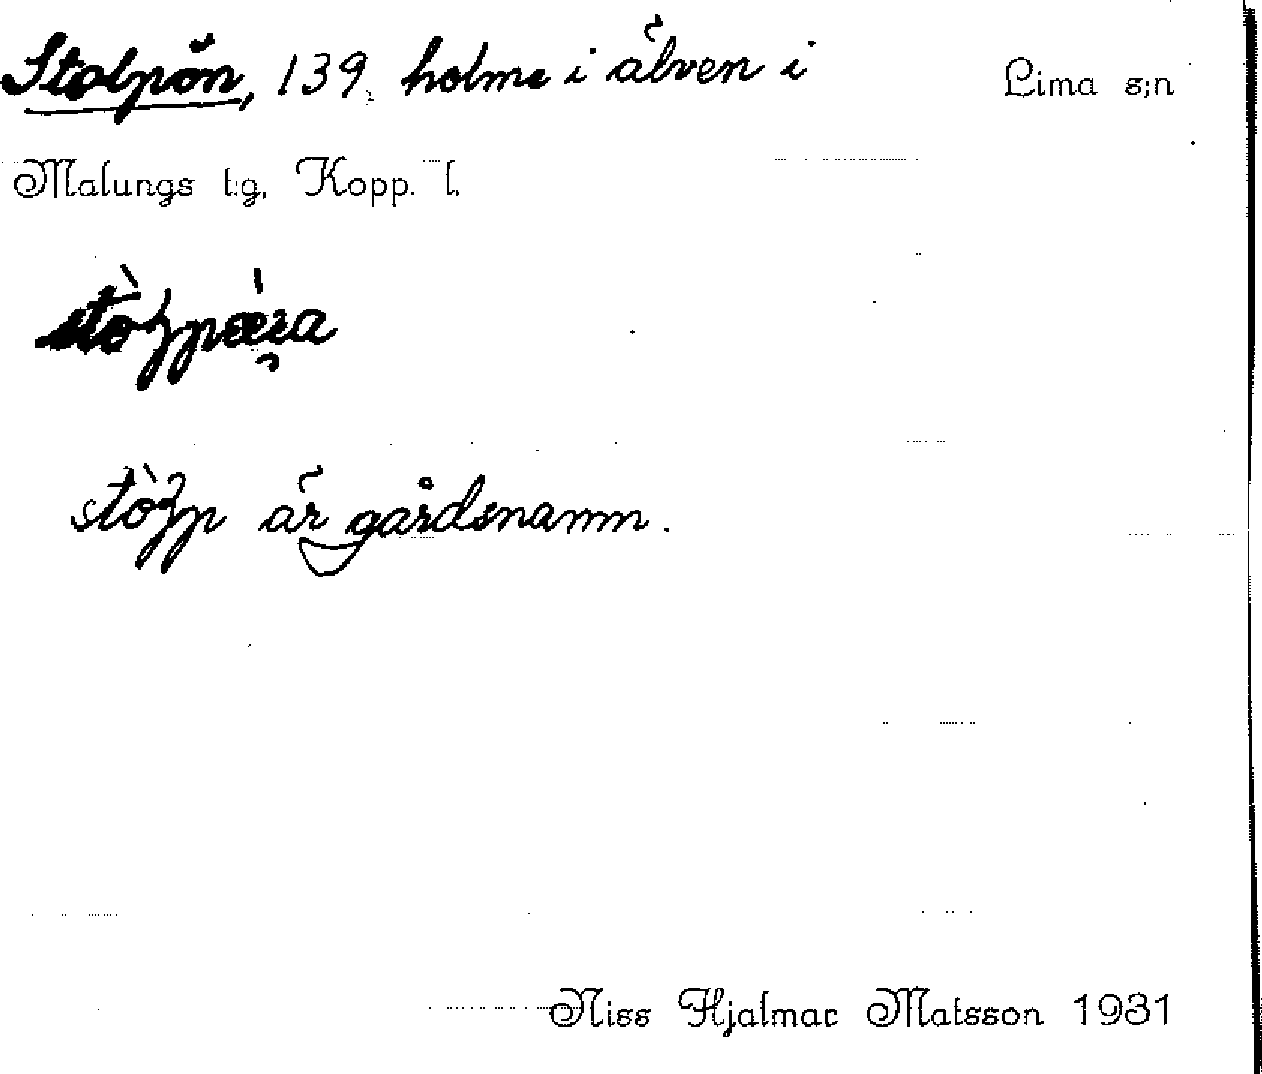 Stolpön, 139, holme i älven i Lima s:n
Malungs t:g, Kopp. l.
stòɫpǿɛra
stòɫp är gårdsnamn.
Niss Hjalmar Matsson 1931